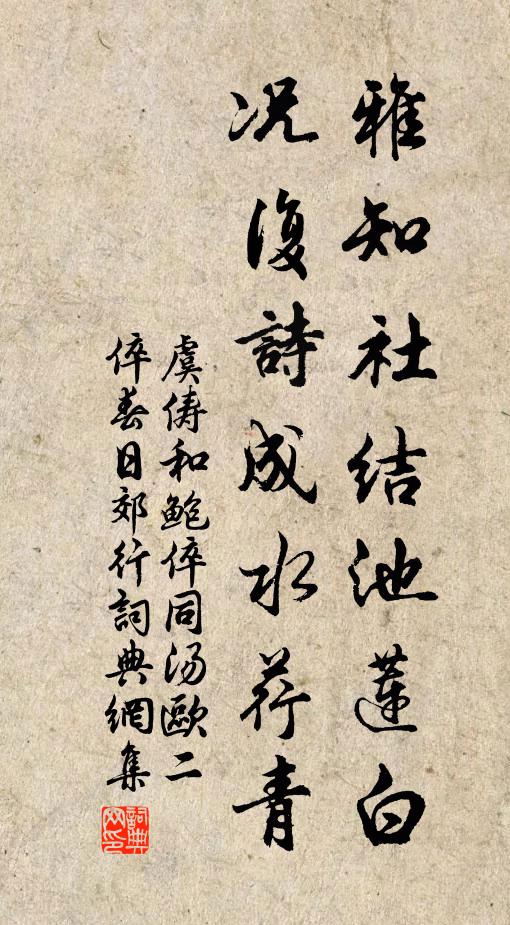 雅知社结池蓮白
况復詩成水荇青
虞俦和鲍倅同汤歐二
倅春日郊行詞典網集
詞典网印